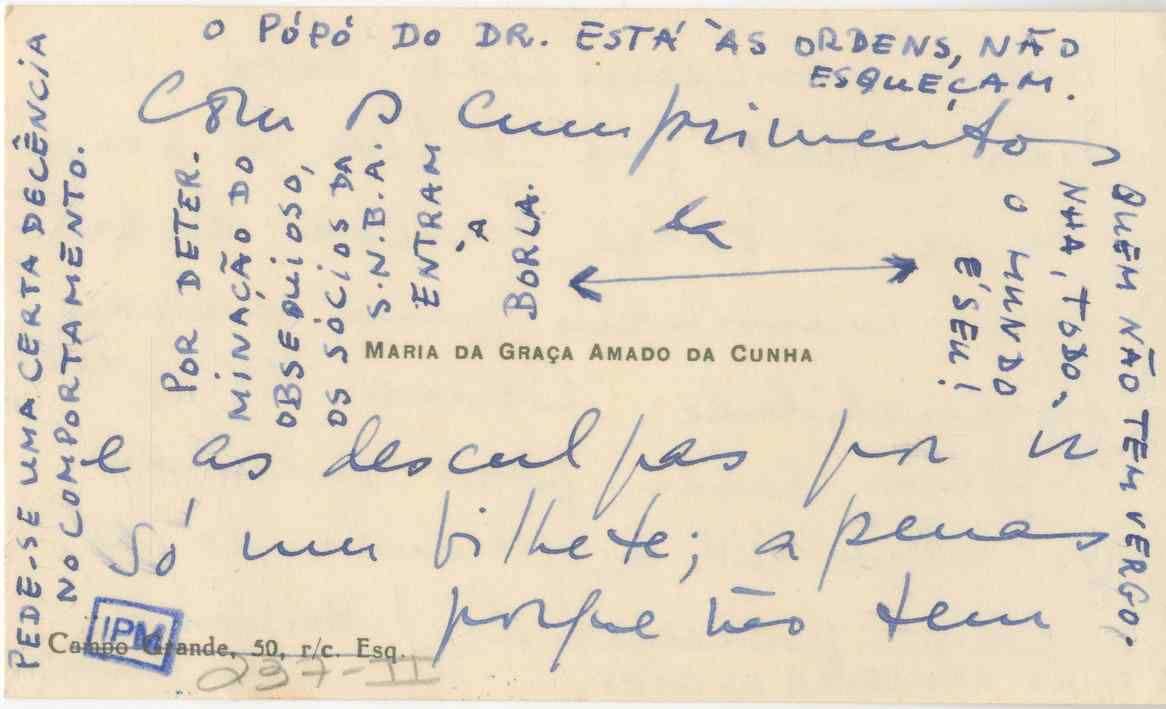 O PÓPÓ DO DR. ESTÁ ÀS ORDENS, NÃO
ESQUEÇAM.
Com os cumprimentos
da
MARIA DA GRAÇA AMADO DA CUNHA
e as desculpas por ir
só um bilhete; apenas
porque não tem
Campo Grande, 50, r/c. Esq.
IPM
237-II
PEDE-SE UMA CERTA DECÊNCIA
NO COMPORTAMENTO.
POR DETER.
MINAÇÃO DO
OBSEQUIOSO,
OS SÓCIOS DA
S.N.B.A.
ENTRAM
À
BORLA.
QUEM NÃO TEM VERGO.
NHA, TODO
O MUNDO
É SEU!